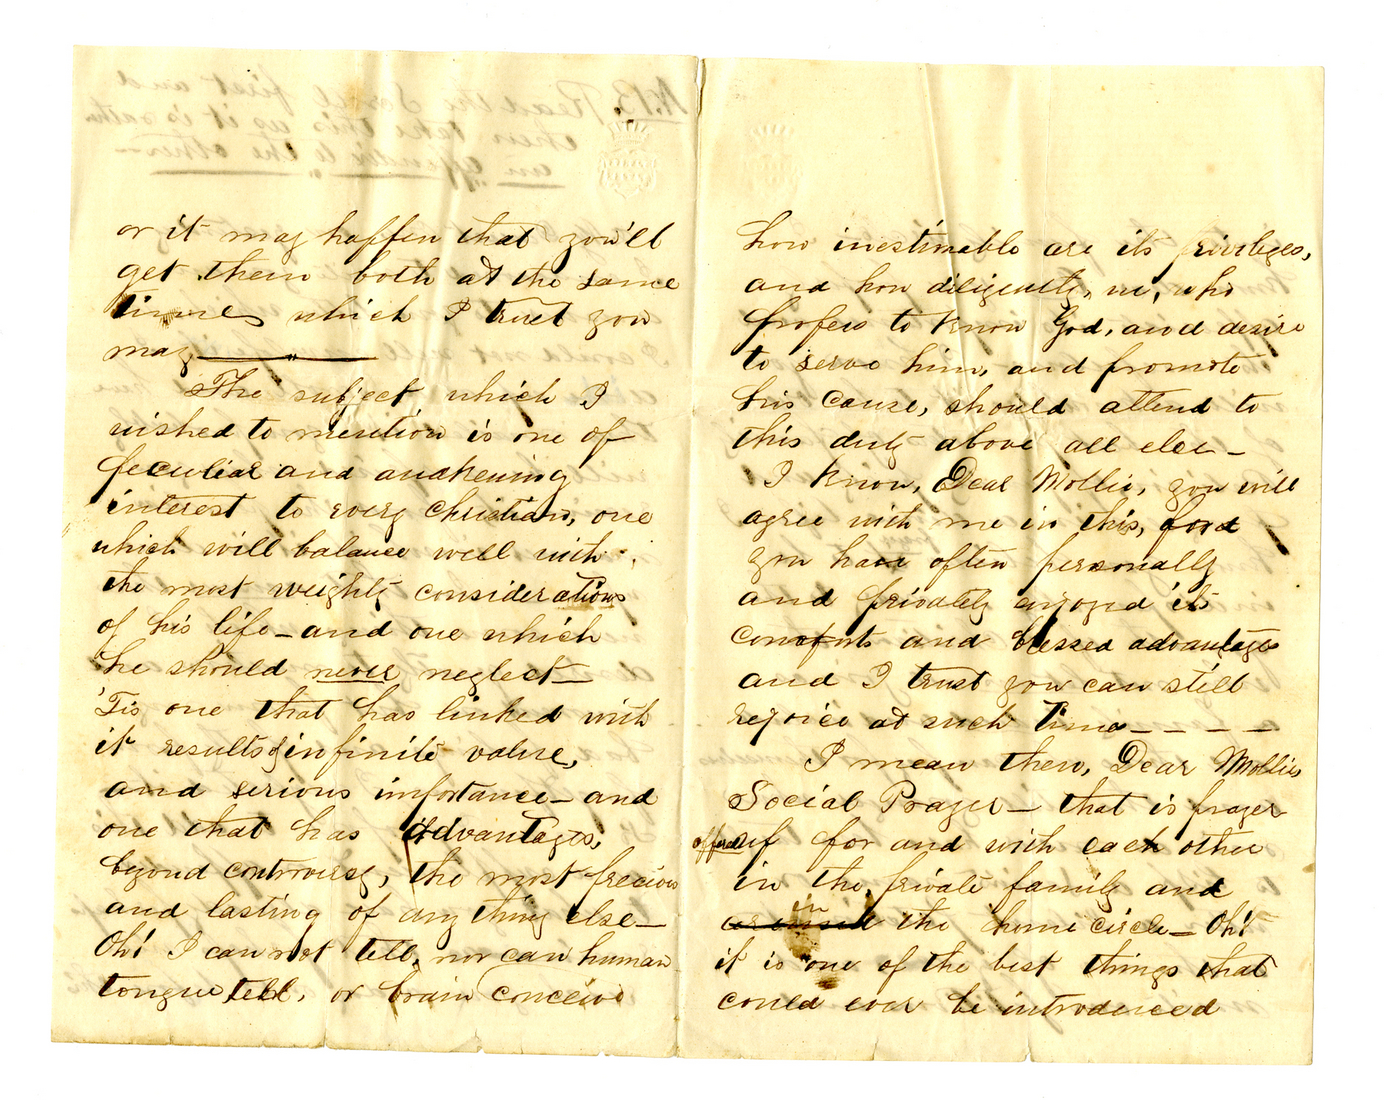 or it may happen that you'll
get them both at the same
time, which I trust you
may
The subject which I
wished to mention is one of
peculiar and awakening
interest to every Christian, one
which will balance well with
the most weighty considerations
of his life - and one which
he should never neglect -
'Tis one that has linked with
it results of infinite value,
and serious importance - and
one that has advantages,
beyond controversy, the most precious
and lasting of any thing else -
Oh! I can not tell, nor can human
tongue tell, or brain conceive
how inestimable are its privileges,
and how diligently, we, who
profess to know God, and desire
to serve him, and promote
his cause, should attend to
this duty above all else -
I know, Dear Mollie, you will
agree with me in this, for
you have often personally
and privately enjoyed its
comforts and blessed advantages
and I trust you can still
rejoice at such time - - - -
I mean then, Dear Mollie
Social Prayer - that is prayer
offered up for and with each other
in the private family and
in the home circle - Oh!
it is one of the best things that
could ever be introduced